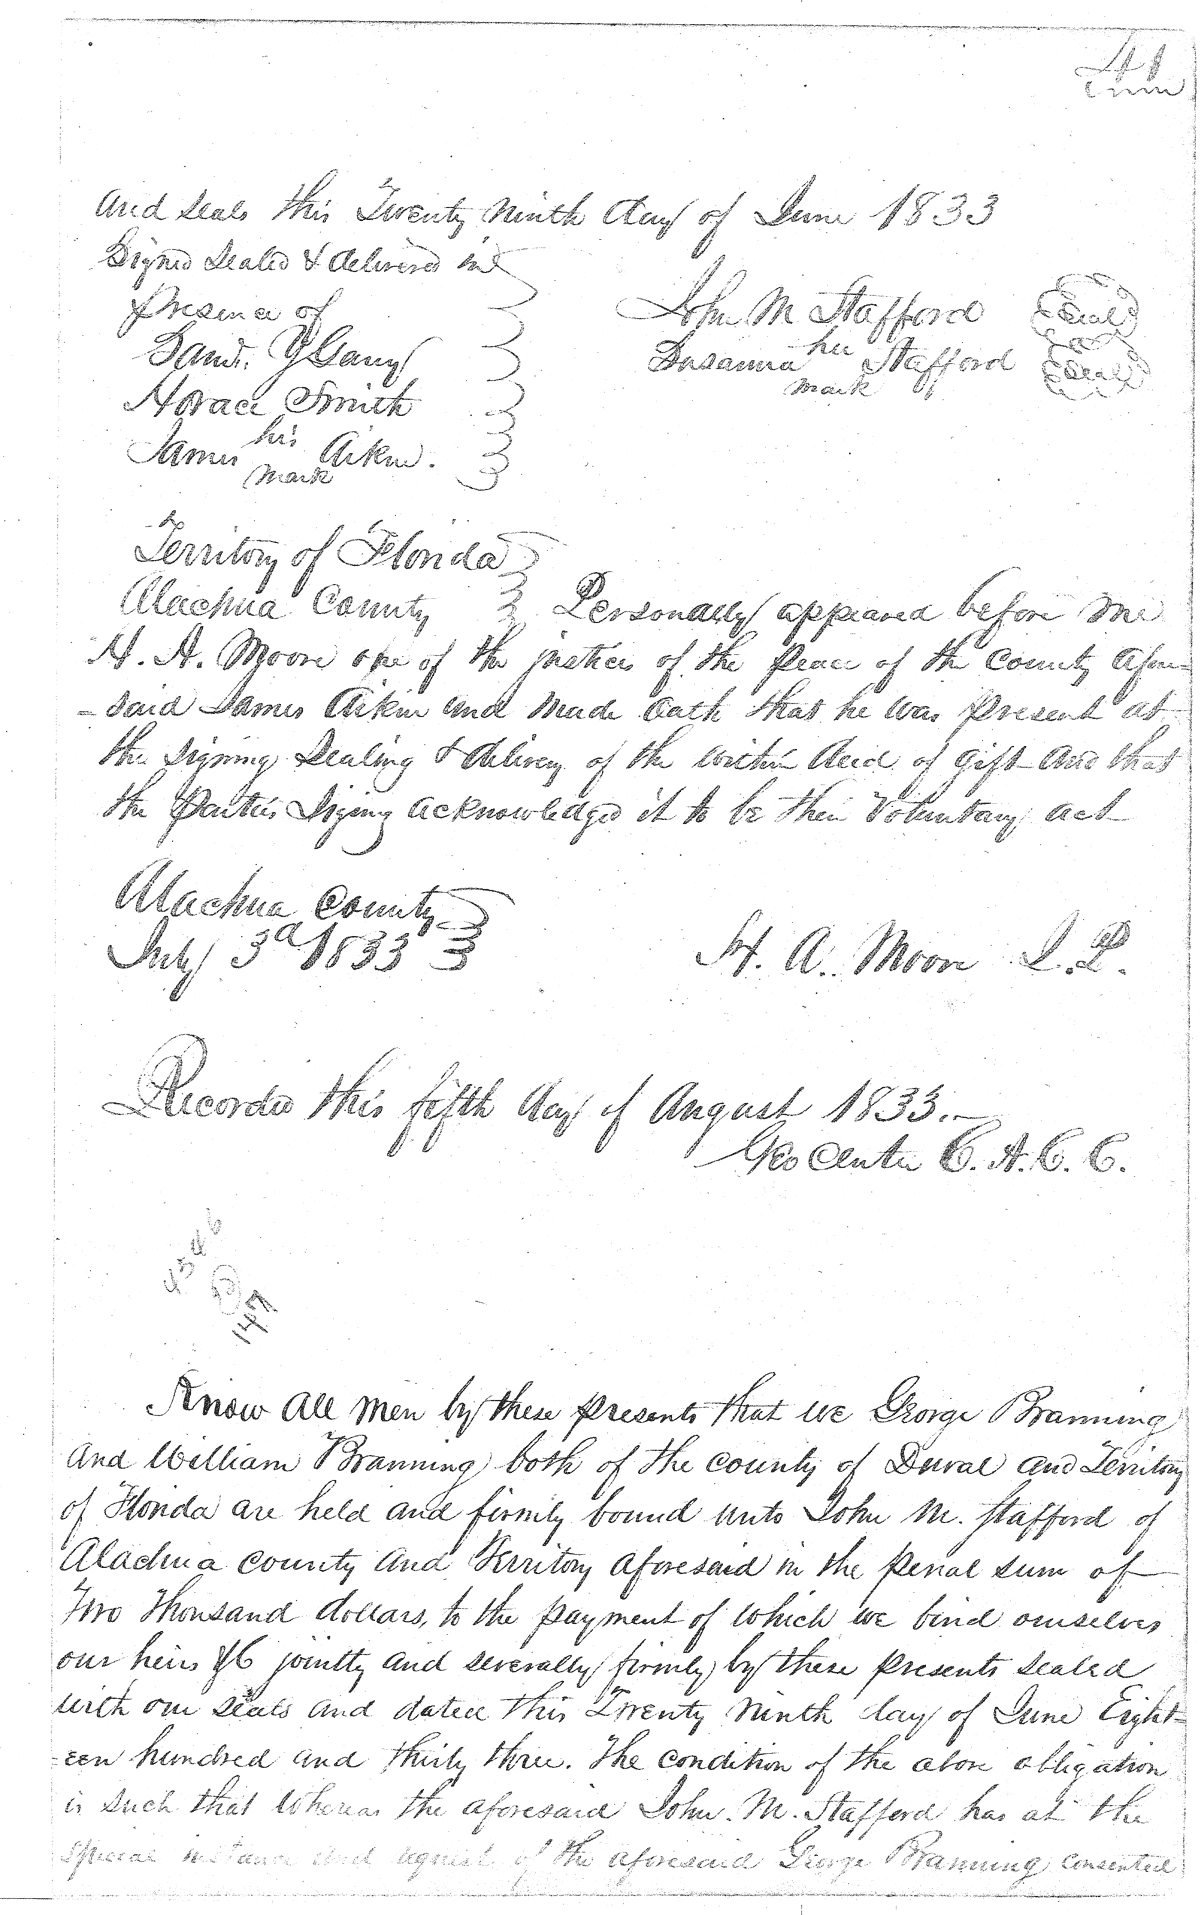 41
and seals this Twenty Ninth day of June 1833
Signed Sealed & delivered in
presence of
John M Stafford Seal
her
Susanna Stafford Seal
mark
Horace Smith
his
James Aikin.
Mark
Territory of Florida
Alachua County Personally appeared before me
H. A. Moore one of the justices of the peace of the County afore
-said James Aikin and made oath that he was present at
the signing Sealing & delivery of the within deed of gift and that
the Parties Signing acknowledged it to be their Voluntary act
Alachua County
July 3d 1833
H. A. Moore J.P.
Recorded this fifth day of August 1833.-
Geo Center C. A. C. C.
Know all men by these presents that we George Branning
and William Branning both of the county of Duval and Territory
of Florida are held and firmly bound unto John M. Stafford of
Alachua county and Territory aforesaid in the penal sum of
Two thousand dollars, to the payment of which we bind ourselves
our heirs &c jointly and severally firmly by these presents sealed
with our seals and dated this Twenty ninth day of June Eight-
-een hundred and thirty three. The condition of the above obligation
is such that whereas the aforesaid John. M. Stafford has at the
special instance and request of the aforesaid George Branning consented